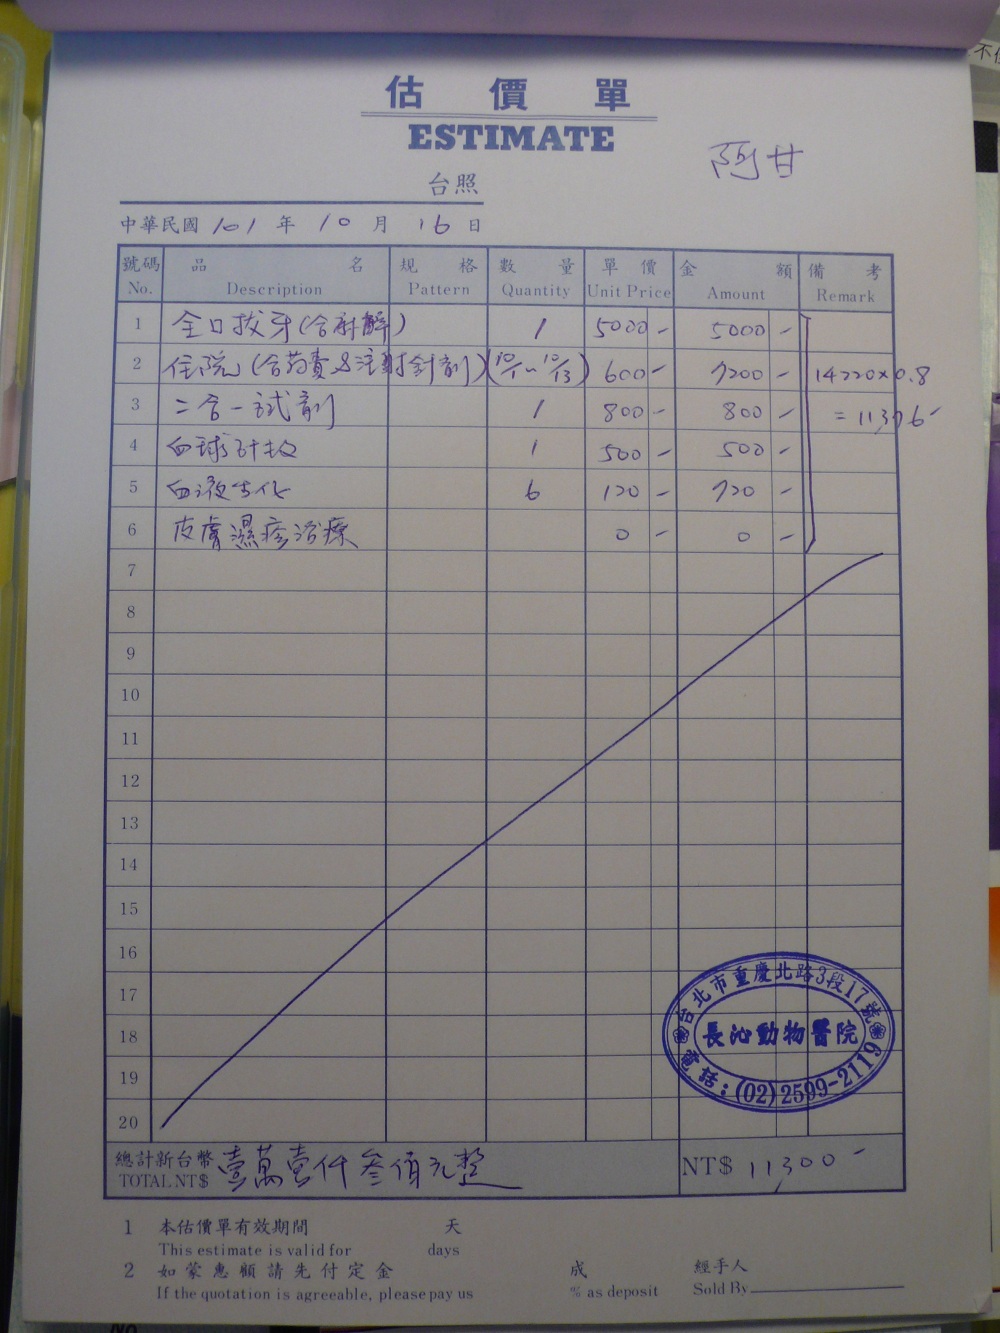 估價單
ESTIMATE
阿甘
台照
中華民國 101 年 10 月 16 日
號碼 品名 規格 數量 單價 金額 備考
No. Description Pattern Quantity Unit Price Amount Remark
1 全口拔牙(含麻醉) 1 5000 - 5000 -
2 住院(含药費及注射針劑)(10/1~10/13) 600 - 7200 - 14220×0.8
3 二合一試劑 1 800 - 800 - = 11376-
4 血球計数 1 500 - 500 -
5 血液生化 6 120 - 720 -
6 皮膚濕疹治療 0 - 0 -
7
8
9
10
11
12
13
14
15
16
17
18
19
20
台北市重慶北路3段17號
長沁動物醫院
電話:(02)2599-2119
總計新台幣 壹萬壹仟叁佰元整
TOTAL NT$ NT$ 11300-
1 本估價單有效期間 天
This estimate is valid for days
2 如蒙惠顧請先付定金 成 經手人
If the quotation is agreeable, please pay us % as deposit Sold By